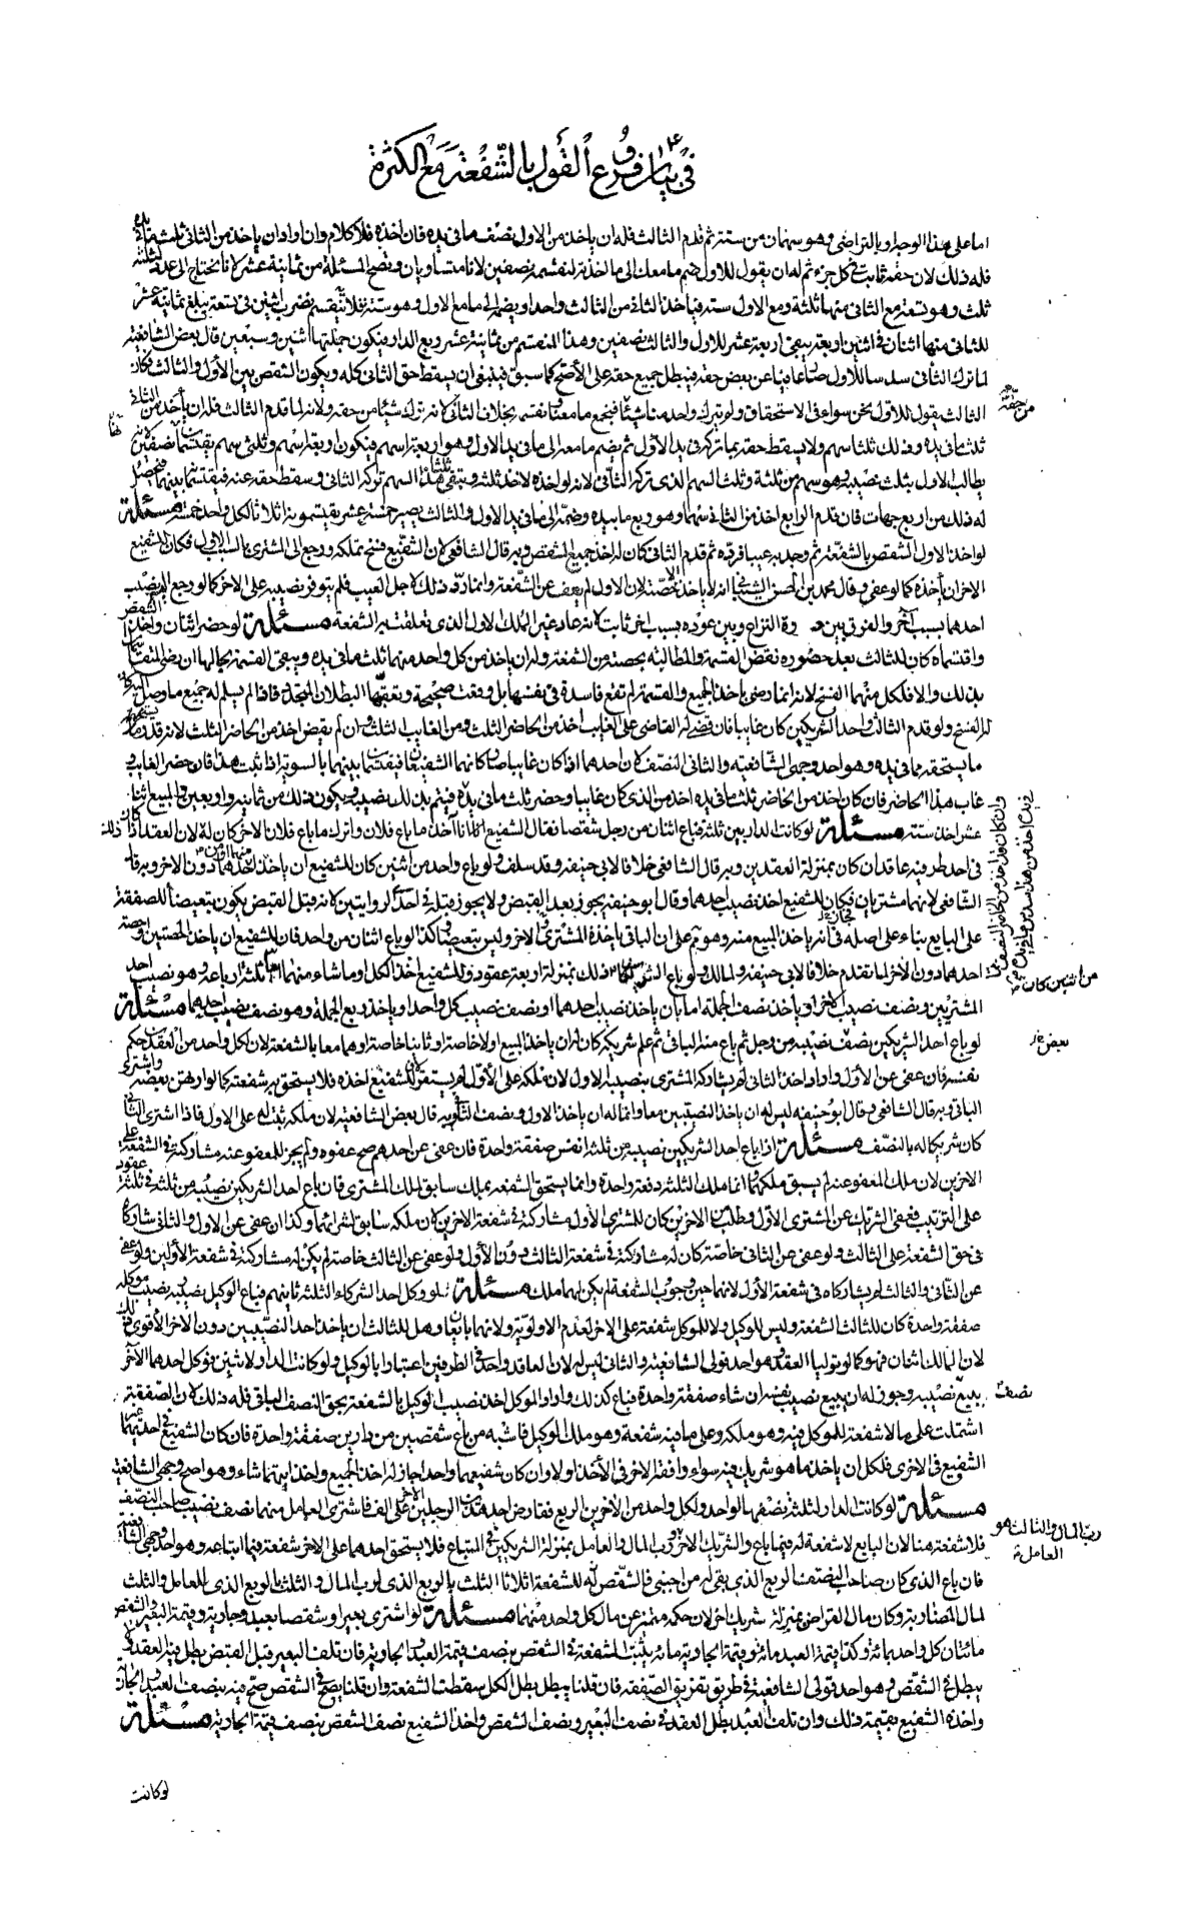 في بيان فروع القول بالشفعة مع الكثرة
اما على هذا الوجه او بالتراضي وهو سهمان من ستة ثم قدم الثالث فله ان ياخذ من الاول نصف ما في يده فان اخذه فلا كلام وان اراد ان ياخذ من الثاني ثلث ما في يده
فله ذلك لان حقه ثابت في كل جزء ثم له ان يقول للاول ضم ما معك الى ما اخذته لنقسمه نصفين لانا متساويان وتصح المسئلة من ثمانية عشر لانا نحتاج الى عدد لثلثه
ثلث وهو تسعة مع الثاني منها ثلثة ومع الاول ستة فياخذ الثالث من الثاني واحدا ويضمه الى ما مع الاول وهو ستة فلا تنقسم نضرب اثنين في تسعة يبلغ ثمانية عشر
للثاني منها اثنان في اثنين اربعة يبقى اربعة عشر للاول والثالث نصفين وهذا المنقسم من ثمانية عشر ربع الدار فيكون جملتها اثنين وسبعين قال بعض الشافعية
لما ترك الثاني سدسا للاول صار عافيا عن بعض حقه فيبطل جميع حقه على الاصح كما سبق فينبغي ان يسقط حق الثاني كله ويكون الشقص بين الاول والثالث فكان
الثالث يقول للاول نحن سواء في الاستحقاق ولم يترك واحد منا شيئا فنجمع ما معنا ونقسمه بخلاف الثاني لانه ترك شيئا من حقه ولانه لما قدم الثالث فله ان يأخذ من الثاني
ثلث ما في يده وذلك ثلثا سهم ولا يسقط حقه بما تركه في يد الاول ثم يضم ما معه الى ما في يد الاول وهو اربعة اسهم فيكون اربعة اسهم وثلثي سهم يقتسمانها نصفين لانه
يطالب الاول بثلث نصيبه وهو سهم من ثلثة وثلث السهم الذي تركه الثاني لانه لو اخذه لاخذ ثلثه ويبقى ثلثا هذا السهم تركه الثاني وسقط حقه عنه فيقتسمانه بينهما فحصل
له ذلك من اربع جهات فان قدم الرابع اخذ من الثاني سهما وهو ربع ما بيده وضمه الى ما في يد الاول والثالث يصير خمسة عشر يقتسمونه اثلاثا لكل واحد خمسة مسئلة
لو اخذ الاول الشقص بالشفعة ثم وجد به عيبا فرده ثم قدم الثاني كان له اخذ جميع الشقص وبه قال الشافعي لان الشفيع فسخ تملكه ورجع الى المشتري بالسبب الاول فكان للشفيع
الاخر ان يأخذه كما لو عفى وقال محمد بن الحسن الشيباني انه لا ياخذ الا حصته لان الاول لم يعف عن الشفعة وانما رد ذلك لاجل العيب فلم يتوفر نصيبه على الاخر كما لو رجع اليه نصيب
احدهما بسبب آخر والفرق بين النزاع وبين عوده بسبب اخر ثابت لانه عاد غير الملك الاول الذي تعلقت به الشفعة مسئلة لو حضر اثنان واخذا الشقص
واقتسماه كان للثالث بعد حضوره نقض القسمة والمطالبة بحصته من الشفعة وله ان ياخذ من كل واحد منهما ثلث ما في يده ويبقى القسمة بحالها ان رضي المتقاسمان
بذلك والا فلكل منهما الفسخ لانه انما رضي باخذ الجميع والقسمة لم تقع فاسدة في نفسها بل وقعت صحيحة وتعقبها البطلان المتجدد فاذا لم يسلم له جميع ما وصل اليه كان
له الفسخ ولو قدم الثالث واحد الشريكين كان غايبا فان قضى له القاضي على الغايب اخذ من الحاضر الثلث ومن الغايب الثلث وان لم يقض اخذ من الحاضر الثلث لانه قدر ما
ما يستحقه مما في يده وهو احد وجهي الشافعية والثاني النصف لان احدهما اذا كان غايبا صارا كانهما الشفيعان فيقتسمان بينهما بالسوية اذا ثبت هذا فان حضر الغايب و
غاب هذا الحاضر فان كان اخذ من الحاضر ثلث ما في يده اخذ من الذي كان غايبا وحضر ثلث ما في يده فيتم بذلك نصيبه ويكون ذلك من ثمانية واربعين والمبيع اثنا
عشر اخذ ستة مسئلة لو كانت الدار بين ثلثة فباع اثنان من رجل شقصا فقال الشفيع انا آخذ ما باع فلان واترك ما باع فلان الاخر كان له لان العقد اذا كان
في احد طرفيه عاقدان كان بمنزلة العقدين وبه قال الشافعي خلافا لابي حنيفة وقد سلف ولو باع واحد من اثنين كان للشفيع ان ياخذ منهما او من احدهما دون الاخر وبه قال
الشافعي لانهما مشتريان فكان للشفيع اخذ نصيب احدهما وقال ابو حنيفة يجوز بعد القبض ولا يجوز قبله في احدى الروايتين لانه قبل القبض يكون تبعيضا للصفقة
على البايع بناء على اصله في انه ياخذ المبيع منه وهو مبني على ان الباقي ياخذه المشتري الاخر وليس بتبعيض وكذا لو باع اثنان من واحد فان للشفيع ان ياخذ الحصتين او حصة
احدهما دون الاخر لما تقدم خلافا لابي حنيفة ولمالك ولو باع الشريكان ذلك بمنزلة اربعة عقود وللشفيع اخذ الكل او ما شاء منهما اما ثلثة ارباعه وهو نصيب احد
المشتريين ونصف نصيب الاخر او ياخذ نصف الجملة اما بان ياخذ نصيب احدهما او نصف نصيب كل واحد او ياخذ ربع الجملة وهو نصف نصيب احدهما مسئلة
لو باع احد الشريكين بعض نصيبه من رجل ثم باع منه الباقي ثم علم شريكه كان له ان ياخذ المبيع اولا خاصة او ثانيا خاصة او هما معا بالشفعة لان لكل واحد من العقدين حكم
نفسه فان عفى عن الاول واراد اخذ الثاني لم يشاركه المشتري بنصيبه الاول لان ملكه على الاول لم يستقر لان للشفيع اخذه فلا يستحق به شفعة كما لو ارتهن بعضه واشترى
الباقي وبه قال الشافعي وقال ابو حنيفة ليس له ان ياخذ النصيبين معا وانما له ان ياخذ الاول ونصف الثاني وبه قال بعض الشافعية لان ملكه ثبت له على الاول فاذا اشترى الثاني
كان شريكا له بالنصف مسئلة اذا باع احد الشريكين نصيبه من ثلثة انفس صفقة واحدة فان عفى عن احدهم صح عفوه ولم يجز للمعفو عنه مشاركته في الشفعة على
الاخرين لان ملك المعفو عنه لم يسبق ملكهما انما ملك الثلثة دفعة واحدة وانما يستحق الشفعة بملك سابق لملك المشتري فان باع احد الشريكين نصيبه من ثلثة في ثلثة عقود
على الترتيب فعفى الشريك عن المشتري الاول وطلب من الاخرين كان للمشتري الاول مشاركته في شفعة الاخرين لان ملكه سابق لشرائهما وكذا ان عفى عن الاول والثاني شاركاه
في حق الشفعة على الثالث ولو عفى عن الثاني خاصة كان له مشاركته في شفعة الثالث دون الاول ولو عفى عن الثالث خاصة لم يكن له مشاركته في شفعة الاولين ولو عفى
عن الثاني والثالث لم يشاركاه في شفعة الاول لانهما حين وجوب الشفعة لم يكن لهما ملك مسئلة لو وكل احد الشركاء الثلثة ثانيهم فباع الوكيل نصيبه ونصيب موكله
صفقة واحدة كان للثالث الشفعة وليس للوكيل ولا للموكل شفعة على الاخر لعدم الاولوية ولانهما بايعان وهل للثالث ان ياخذ احد النصيبين دون الاخر الاقوى ذلك
لان المالك اثنان فهو كما لو توليا العقد وهو احد قولي الشافعية والثاني ليس له لان العاقد واحد في الطرفين اعتبارا بالوكيل ولو كانت الدار لاثنين فوكل احدهما الآخر
ببيع نصف نصيبه وجوز له ان يبيع نصيب نفسه ان شاء صفقة واحدة فباع كذلك واراد الموكل اخذ نصيب الوكيل بالشفعة بحق النصف الباقي فله ذلك لان الصفقة
اشتملت على ما لا شفعة للموكل فيه وهو ملكه وعلى ما فيه شفعة وهو ملك الوكيل فاشبه من باع شقصين من دارين صفقة واحدة فان كان الشفيع في احديهما غير
الشفيع في الاخرى فلكل ان ياخذ ما هو شريك فيه سواء وافقه الاخر في الاخذ او لا وان كان شفيعهما واحدا جاز له اخذ الجميع واخذ ايتهما شاء وهو اصح وجهي الشافعية
مسئلة لو كانت الدار لثلثة نصفها لواحد ولكل واحد من الاخرين الربع فقارض احد هذين الرجلين الاخر على الف فاشترى العامل منهما نصف نصيب صاحب النصف
فلا شفعة هنا لان البايع لا شفعة له فيما باع والشريك الاخر رب المال والعامل بمنزلة الشريكين في المتاع فلا يستحق احدهما على الاخر شفعة فيما ابتاعه وهو احد وجهي الشافعية
فان باع الذي كان صاحب النصف الربع الذي بقي له من اجنبي فالشقص فيه للشفعة اثلاثا الثلث بالربع الذي لرب المال والثلث بالربع الذي للعامل والثلث
لمال المضاربة وكان مال القراض بمنزلة شريك اخر لان حكمه متميز عن مال كل واحد منهما مسئلة لو اشترى بعيرا وشقصا بعبد وجارية وقيمة البعير والشقص
مائتان كل واحد بمائة وكذا قيمة العبد مائة وقيمة الجارية مائة يثبت الشفعة في الشقص بنصف قيمة العبد والجارية فان تلف البعير قبل القبض بطل فيه العقد ولا
يبطل في الشقص وهو احد قولي الشافعية في طريق تفريق الصفقة فان قلنا يبطل بطل الكل سقطت الشفعة وان قلنا يصح في الشقص صح فيه بنصف العبد والجارية
واخذه الشفيع بقيمة ذلك وان تلف العبد بطل العقد في نصف البعير ونصف الشقص واخذ الشفيع نصف الشقص بنصف قيمة الجارية مسئلة
من حقه
من اثنين كان
بعض
نصف
رب المال والثالث هو
العامل
لو كانت